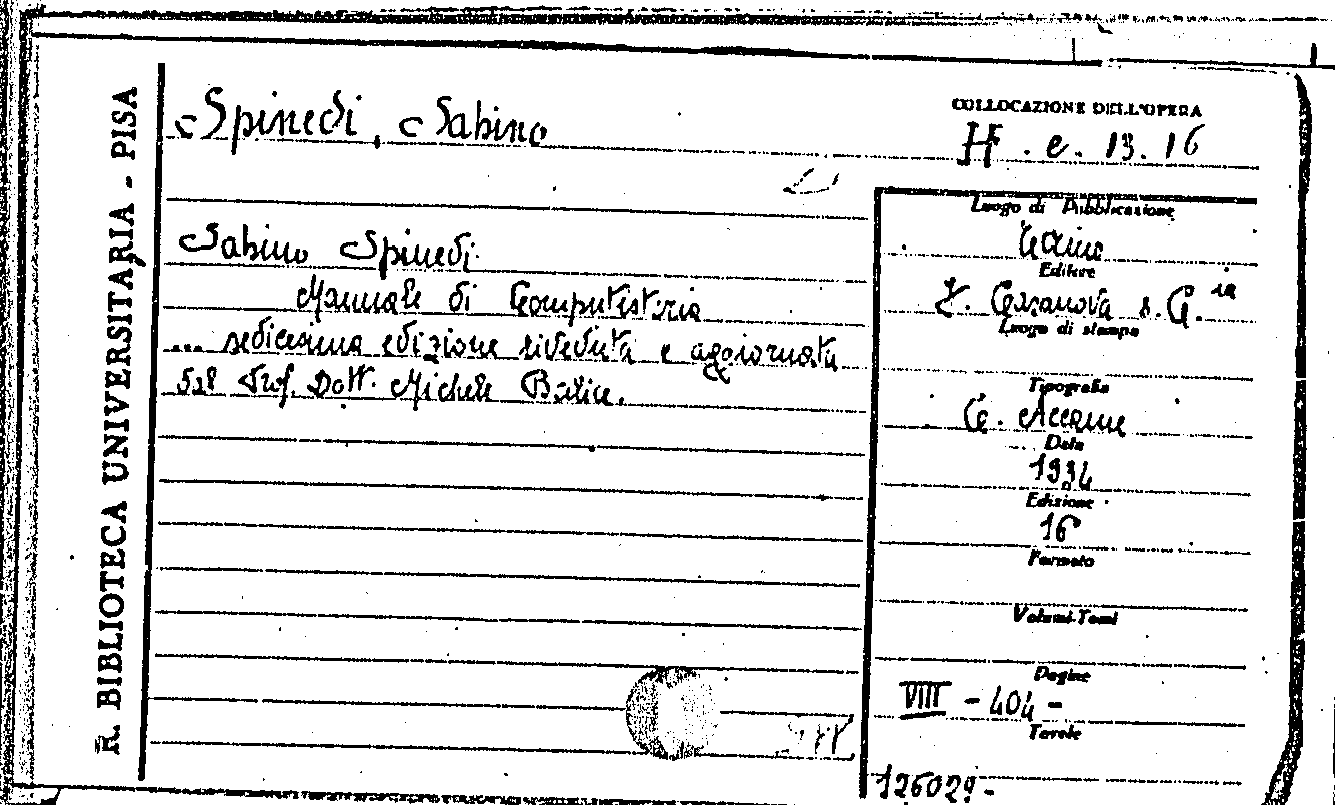 R. BIBLIOTECA UNIVERSITARIA - PISA
Spinedi, Sabino
COLLOCAZIONE DELL'OPERA
H. e. 13. 16
Sabino Spinedi
Manuale di Computisteria
... sedicesima edizione riveduta e aggiornata
dal Prof. Dott. Michele
Luogo di Pubblicazione
Torino
Editore
F. Casanova e C.ia
Luogo di stampa
Tipografia
C. Accame
Data
1934
Edizione
16
Formato
Volumi-Tomi
Pagine
VIII - 404 -
Tavole
126029 -